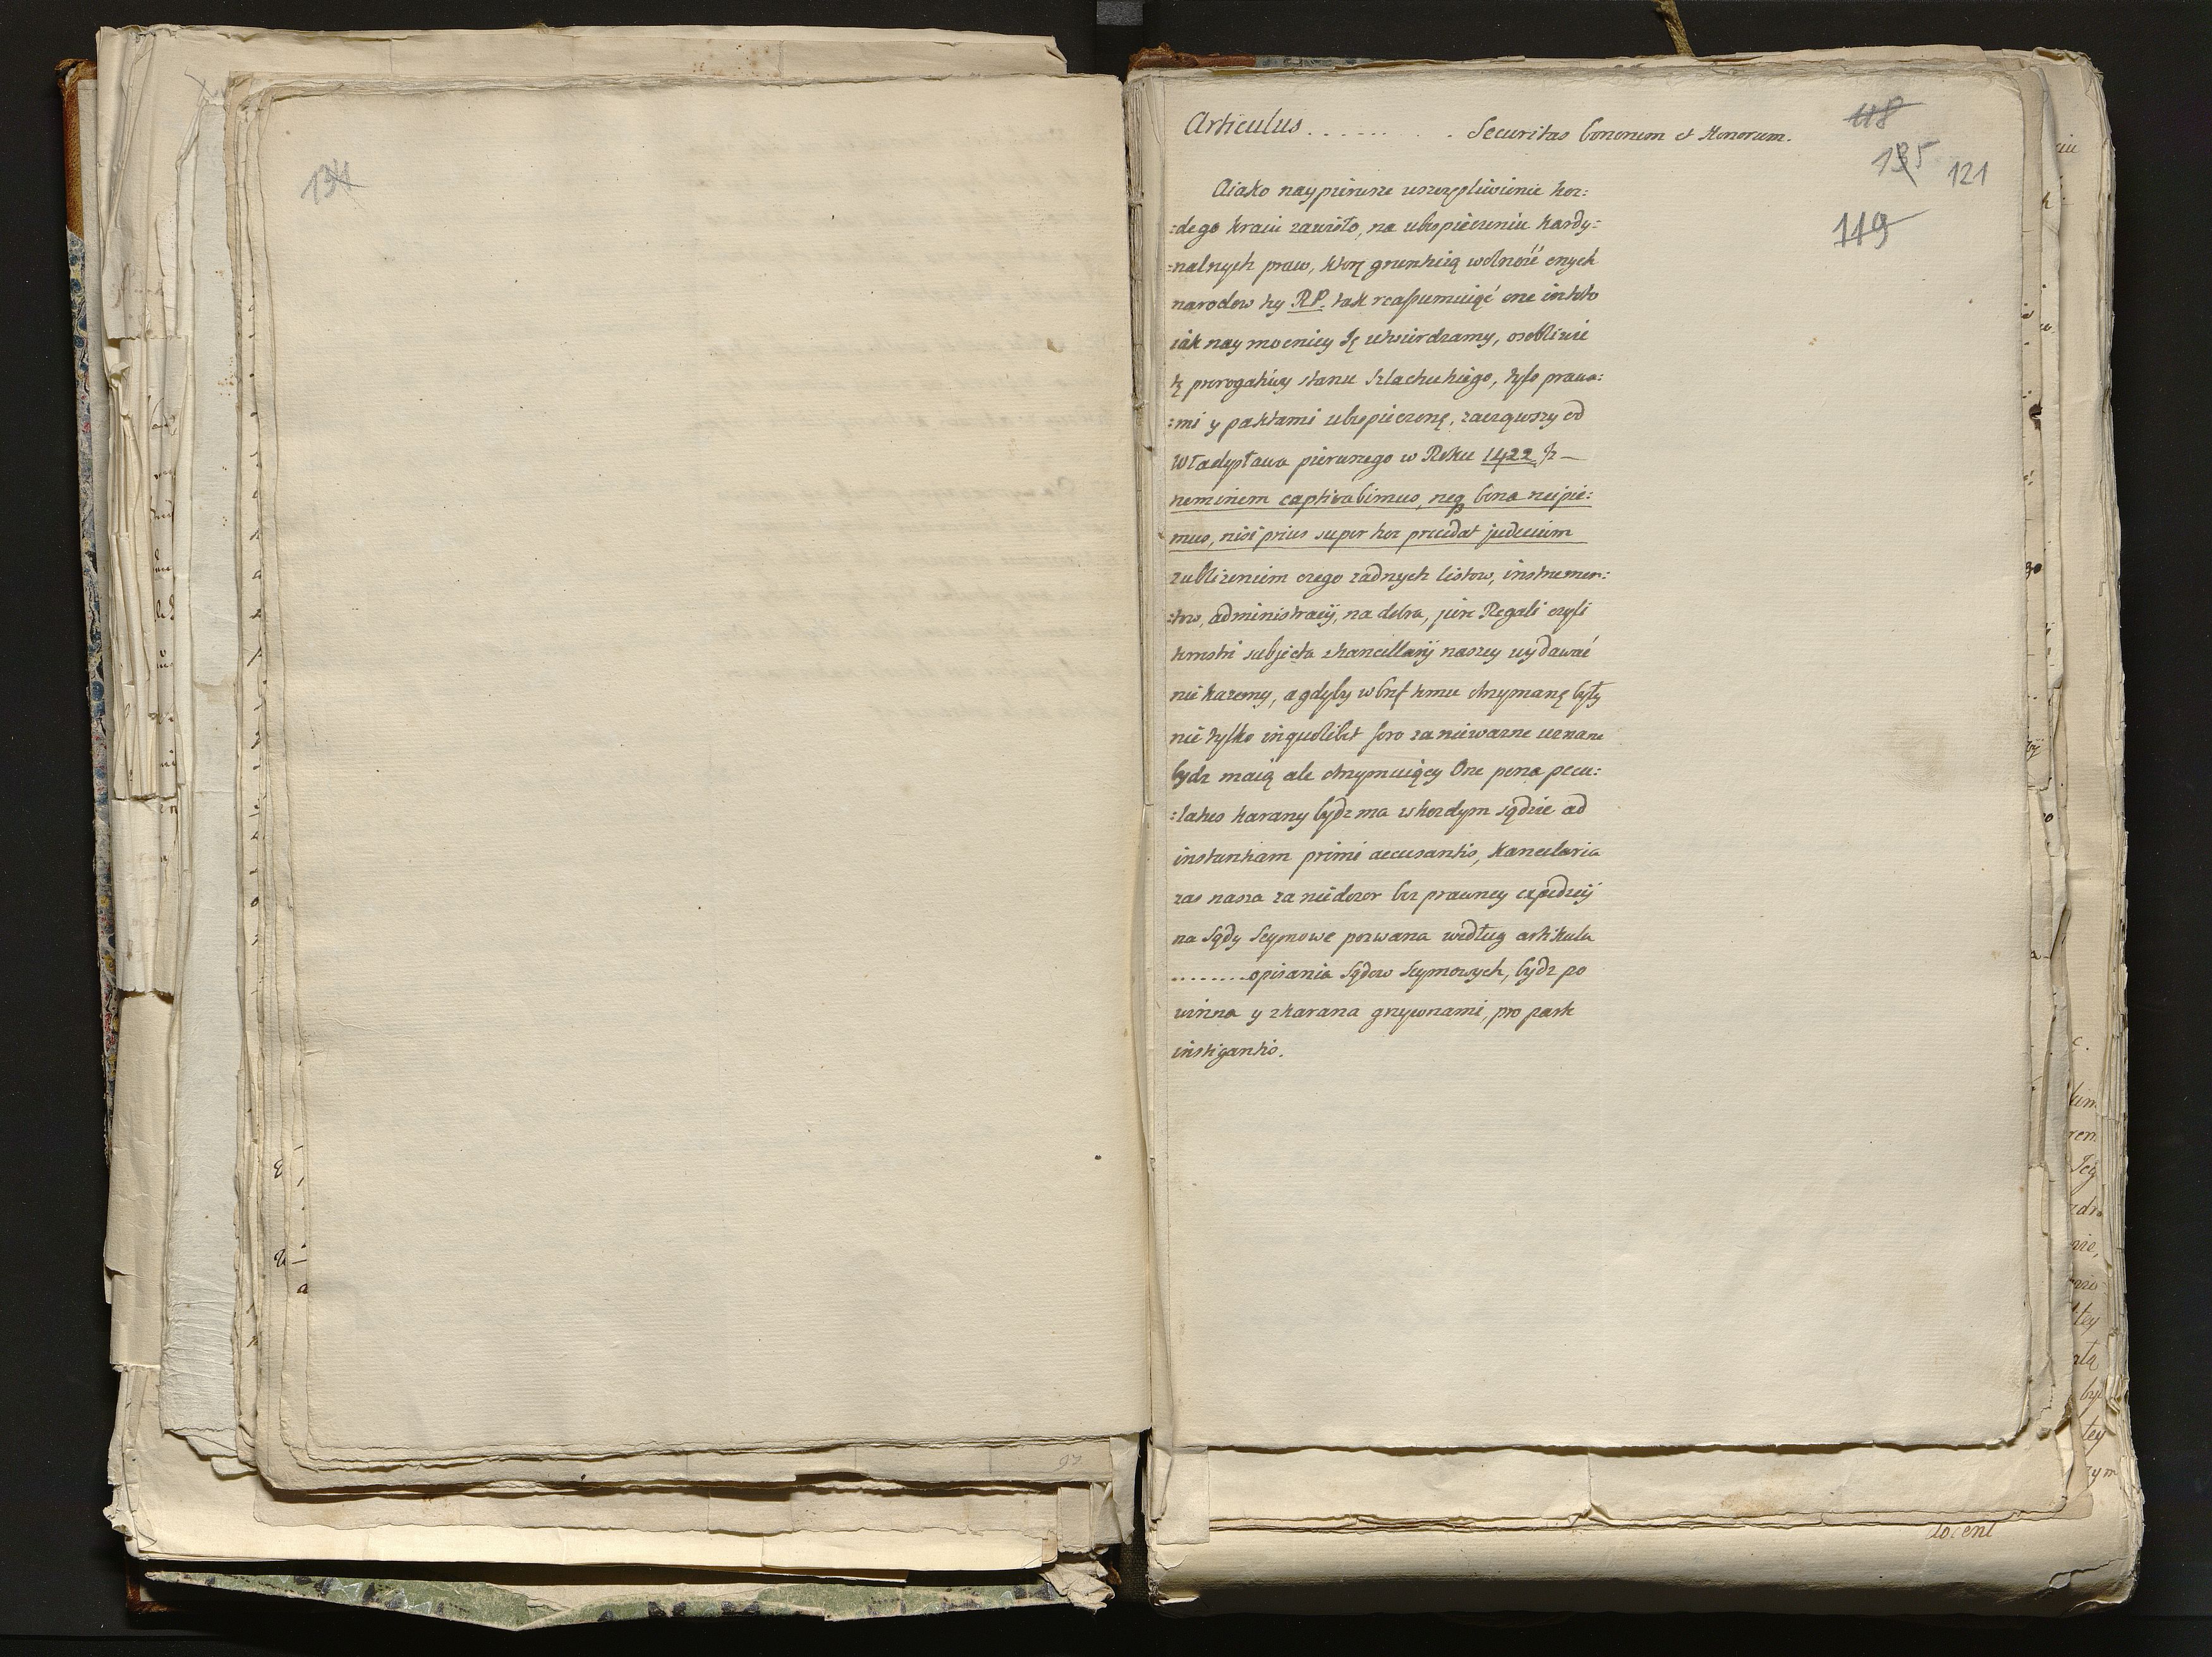 134
Articulus . . . . . . . . . Securitas bonorum et Honorum.
118
135 121
119
Aiako naypierwsze uszczęsliwienie kaz:
:dego kraiu zawisło, na ubespieczeniu kardy:
:nalnych praw, ktorę gruntuią wolność onych
narodow tey RP. tak reassumuiąć one in toto
iak naymocniey Ię utwierdzamy, osobliwie
tę prerogatiwę stanu szlacheckiego, tylo prawa:
:mi y paktami ubespieczonę, zacząwszy od
Władysława pierwszego w Roku 1422 Iz –
neminem captivabimus, neq bona recipie:
mus, nisi prius super hoc precedat judicium
zubliżeniem czego żadnych listow, instrumen:
:tow, administracij, na dobra, jure Regali czyli
terrestri subjecta zkancellarij naszey wydawać
nie każemy, a gdyby wbref temu otrzymanę były
nie tylko in quolibet foro za nieważne uznane
bydz maią ale otrzymuiący One pena pecu:
:latus karany bydz ma w kozdym sądzie ad
instantiam primi accusantis, kancelaria
zas nasza za niedozor bez prawney expedicij
na sądy seymowe pozwana według artikulu
.........opisania sądow seymowych, bydz po
winna y zkarana grzywnami, pro parte
instigantis.